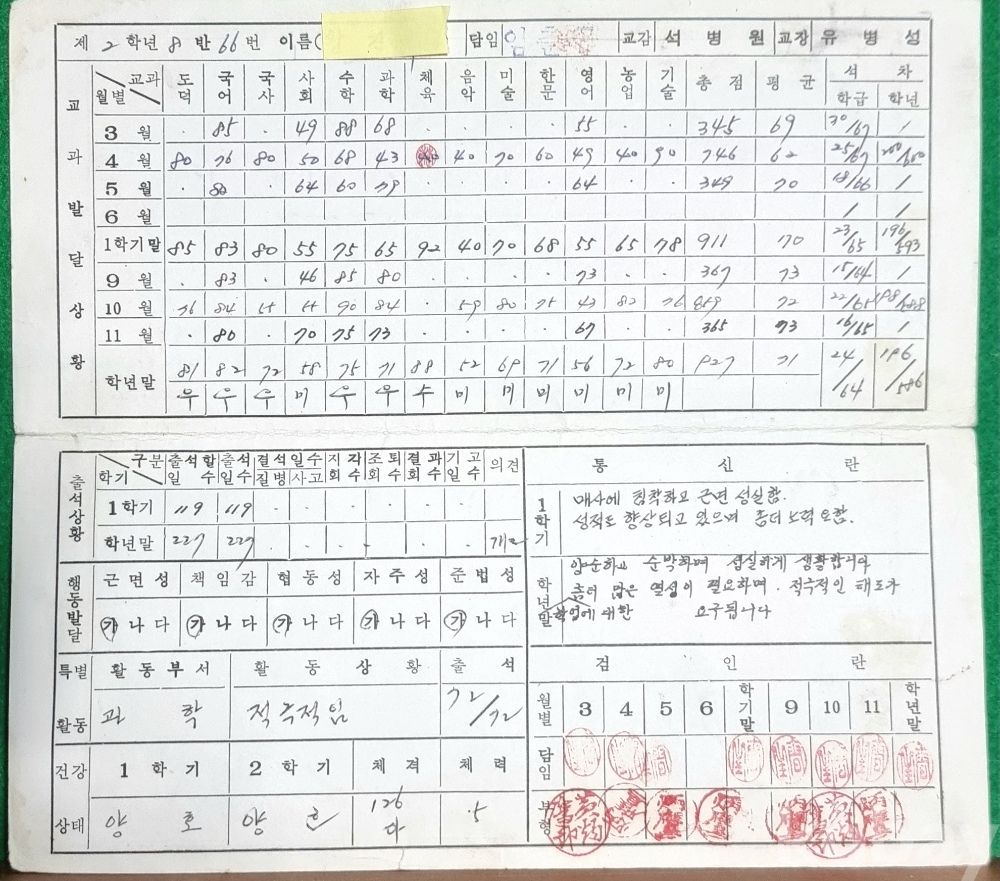 제 2 학년 8 반 66 번 이름( 담임 교감 석병원 교장 유병성
교과발달상황
월별 교과 도덕 국어 국사 사회 수학 과학 체육 음악 미술 한문 영어 농업 기술 총점 평균 석차 학급 학년
3 월 . 85 . 49 88 68 . . . . 55 . . 345 69 30/67 /
4 월 80 76 80 50 68 43 40 70 60 49 40 90 746 62 25/67
5 월 . 80 . 64 60 79 . . . . 64 . . 349 70 18/66 /
6 월 / /
1학기말 85 83 80 55 75 65 92 40 70 68 55 65 78 911 70 23/65 196/593
9 월 . 83 . 46 85 80 . . . . 73 . . 367 73 15/64 /
10 월 76 84 90 84 . 59 80 75 43 82 76 859 72 22/65
11 월 . 80 . 70 75 73 . . . . 67 . . 365 73 16/65 /
학년말 81 82 72 58 75 71 88 52 69 71 56 72 80 927 71 24/64 196/586
우 우 우 미 우 우 수 미 미 미 미 미 미
출석상황
학기 구분 출석할일수 출석일수 결석일수 질병 사고 지각회수 조퇴회수 결과회수 기고일수 의견
1학기 119 119 . . . . . .
학년말 227 227 . . . . . .
행동발달
근면성 책임감 협동성 자주성 준법성
가 나 다 가 나 다 가 나 다 가 나 다 가 나 다
특별활동
활동부서 활동상황 출석
과학 적극적임 72/72
건강상태
1학기 2학기 체격 체력
양호 양호 126 다 .5
통신란
1학기
매사에 침착하고 근면 성실함.
성적도 향상되고 있으며 좀더 노력 요함.
학년말
양순하고 순박하며 성실하게 생활합니다
좀더 많은 열성이 필요하며. 적극적인 태도가
학업에 대한 요구됩니다
검인란
월별 3 4 5 6 학기말 9 10 11 학년말
담임
부형